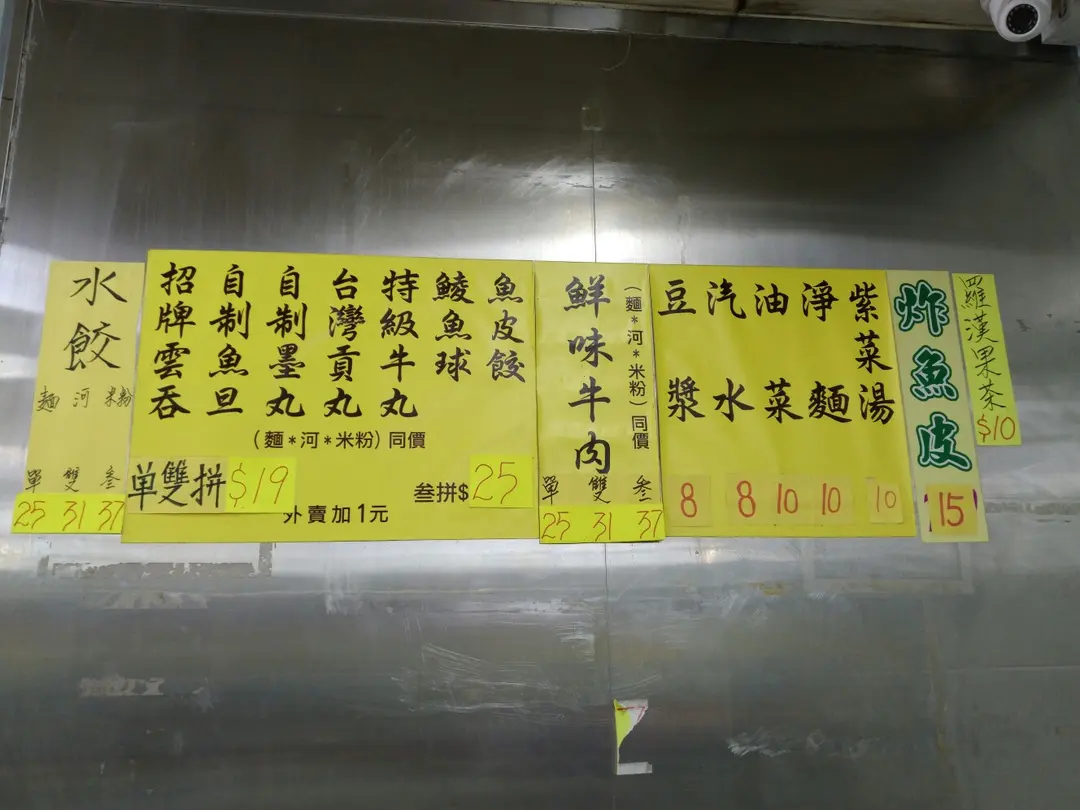 水餃
麵 河 米粉
單 雙 叁
25 31 37
招牌雲吞
自制魚旦
自制墨丸
台灣貢丸
特級牛丸
鯪魚球
魚皮餃
(麵*河*米粉)同價
单雙拼$19
叁拼$25
外賣加1元
鮮味牛肉
(麵*河*米粉)同價
單 雙 叁
25 31 37
豆漿
8
汽水
8
油菜
10
淨麵
10
紫菜湯
10
炸魚皮
15
羅漢果茶
$10